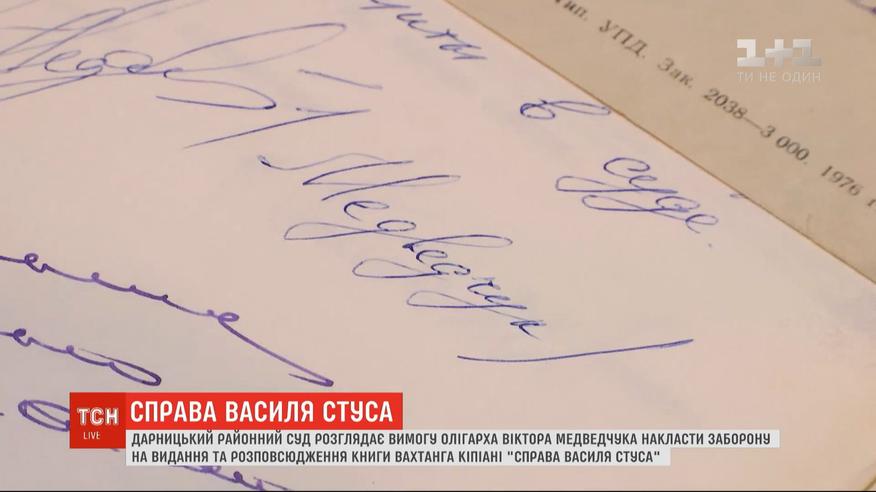 в суде.
/ Медведчук /
Тип. УПД. Зак. 2038—3 000. 1976 г
1+1
ТИ НЕ ОДИН
ТСН
LIVE
СПРАВА ВАСИЛЯ СТУСА
ДАРНИЦЬКИЙ РАЙОННИЙ СУД РОЗГЛЯДАЄ ВИМОГУ ОЛІГАРХА ВІКТОРА МЕДВЕДЧУКА НАКЛАСТИ ЗАБОРОНУ
НА ВИДАННЯ ТА РОЗПОВСЮДЖЕННЯ КНИГИ ВАХТАНГА КІПІАНІ "СПРАВА ВАСИЛЯ СТУСА"